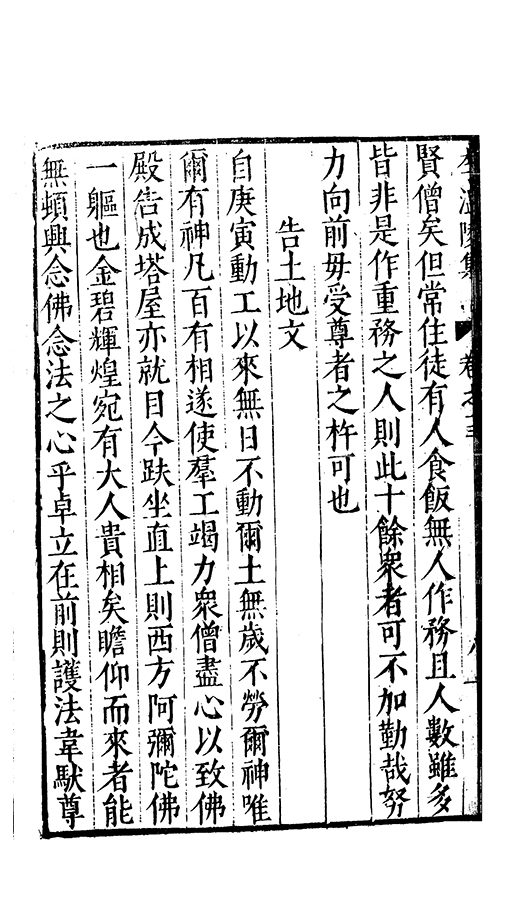 李溫陵集 卷之三
賢僧矣但常住徒有人食飯無人作務且人數雖多
皆非是作重務之人則此十餘衆者可不加勤哉努
力向前毋受尊者之杵可也
告土地文
自庚寅動工以來無日不動爾土無歲不勞爾神唯
爾有神凡百有相遂使羣工竭力衆僧盡心以致佛
殿告成塔屋亦就目今趺坐直上則西方阿彌陀佛
一軀也金碧輝煌宛有大人貴相矣瞻仰而來者能
無頓興念佛念法之心乎卓立在前則護法韋馱尊